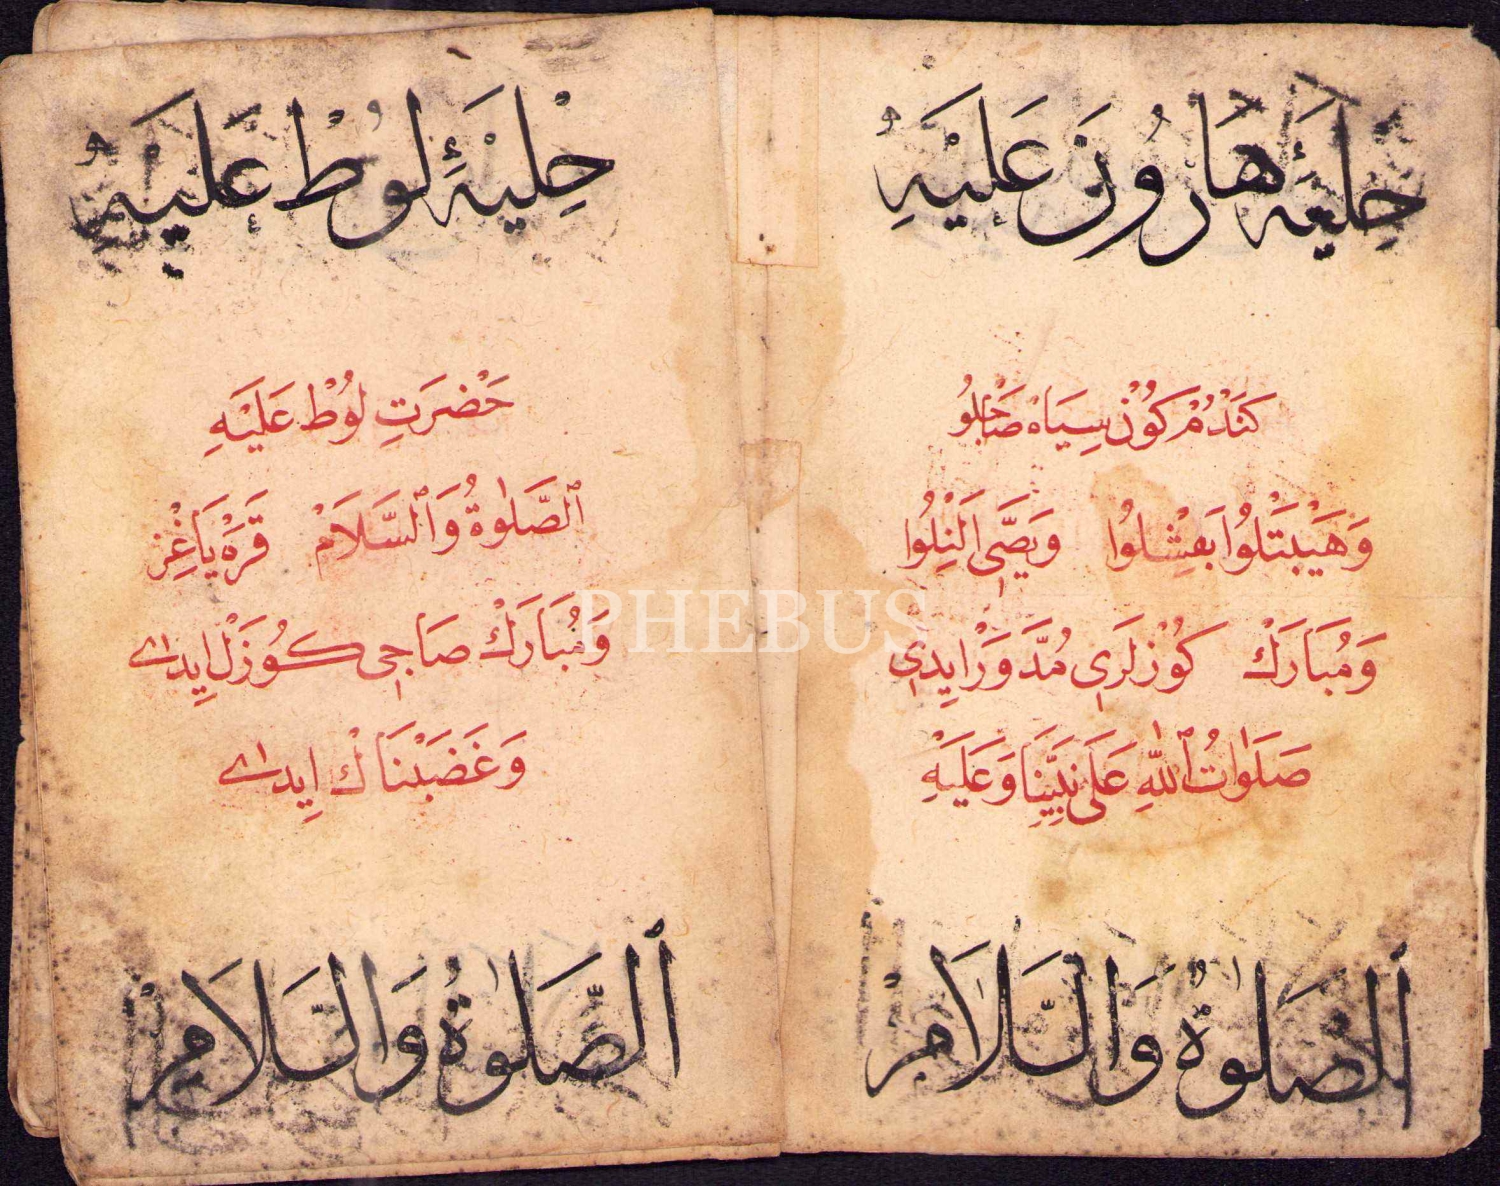 حِلْيَهٔ هَارُونَ عَلَيْهِ
كَنْدُمْ كُونْ سِيَاهْ صَاچْلُو
وَهَيْبَتْلُوا بَقِشْلُوا وَيَصِّى اَلِنْلُوا
وَمُبَارَكْ كُوزْلَرِى مُدَوَّرْ اِيدِى
صَلَوَاتُ ٱللّٰهِ عَلَى نَبِيِّنَا وَعَلَيْهِ
ٱلصَّلٰوةُ وَالسَّلَامْ
حِلْيَهٔ لُوطْ عَلَيْهِ
حَضْرَتِ لُوطْ عَلَيْهِ
ٱلصَّلٰوةُ وَٱلسَّلَامْ قَرَهْ يَاغِزْ
وَمُبَارَكْ صَاچِى كُوزَلْ اِيدِى
وَغَضَبْنَاكْ اِيدِى
ٱلصَّلٰوةُ وَالسَّلَامْ
PHEBUS